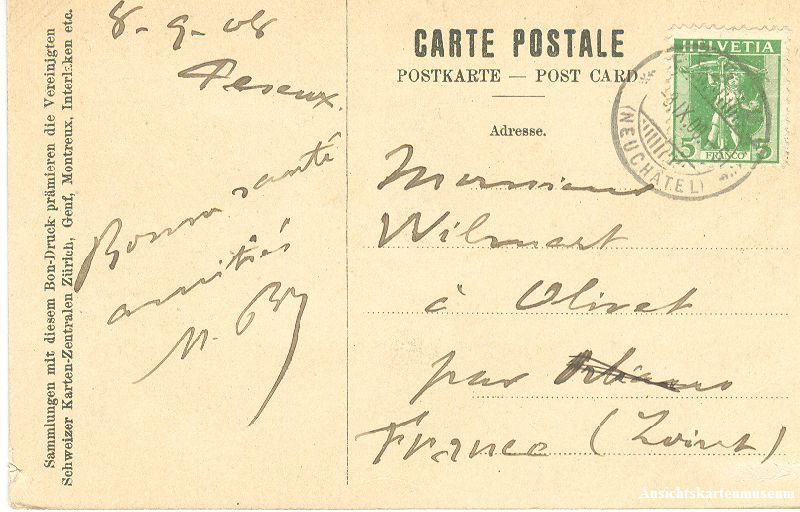 Sammlungen mit diesem Bon-Druck prämieren die Vereinigten
Schweizer Karten-Zentralen Zürich, Genf, Montreux, Interlaken etc.
8-9-08
Peseux.
Bonne santé
amitiés
M.
CARTE POSTALE
POSTKARTE — POST CARD
Adresse.
HELVETIA
5 FRANCO 5
(NEUCHÂTEL)
Monsieur
Wilmart
à Olivet
par Orléans
France (Loiret)
Ansichtskartenmuseum